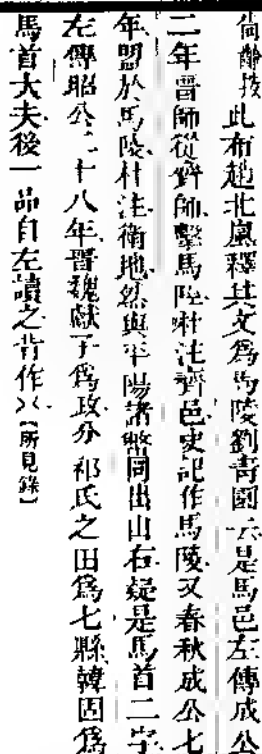 尙齡按此布趙北嵐釋其文爲馬陵劉青園云是馬邑左傳成公
二年晉師從齊師擊馬陘杜注齊邑史記作馬陵又春秋成公七
年盟於馬陵杜注衛地然與平陽諸幣同出山右疑是馬首二字
左傳昭公二十八年晉魏獻子爲政分祁氏之田爲七縣韓固爲
馬首大夫後一品自左讀之背作〤【所見錄】